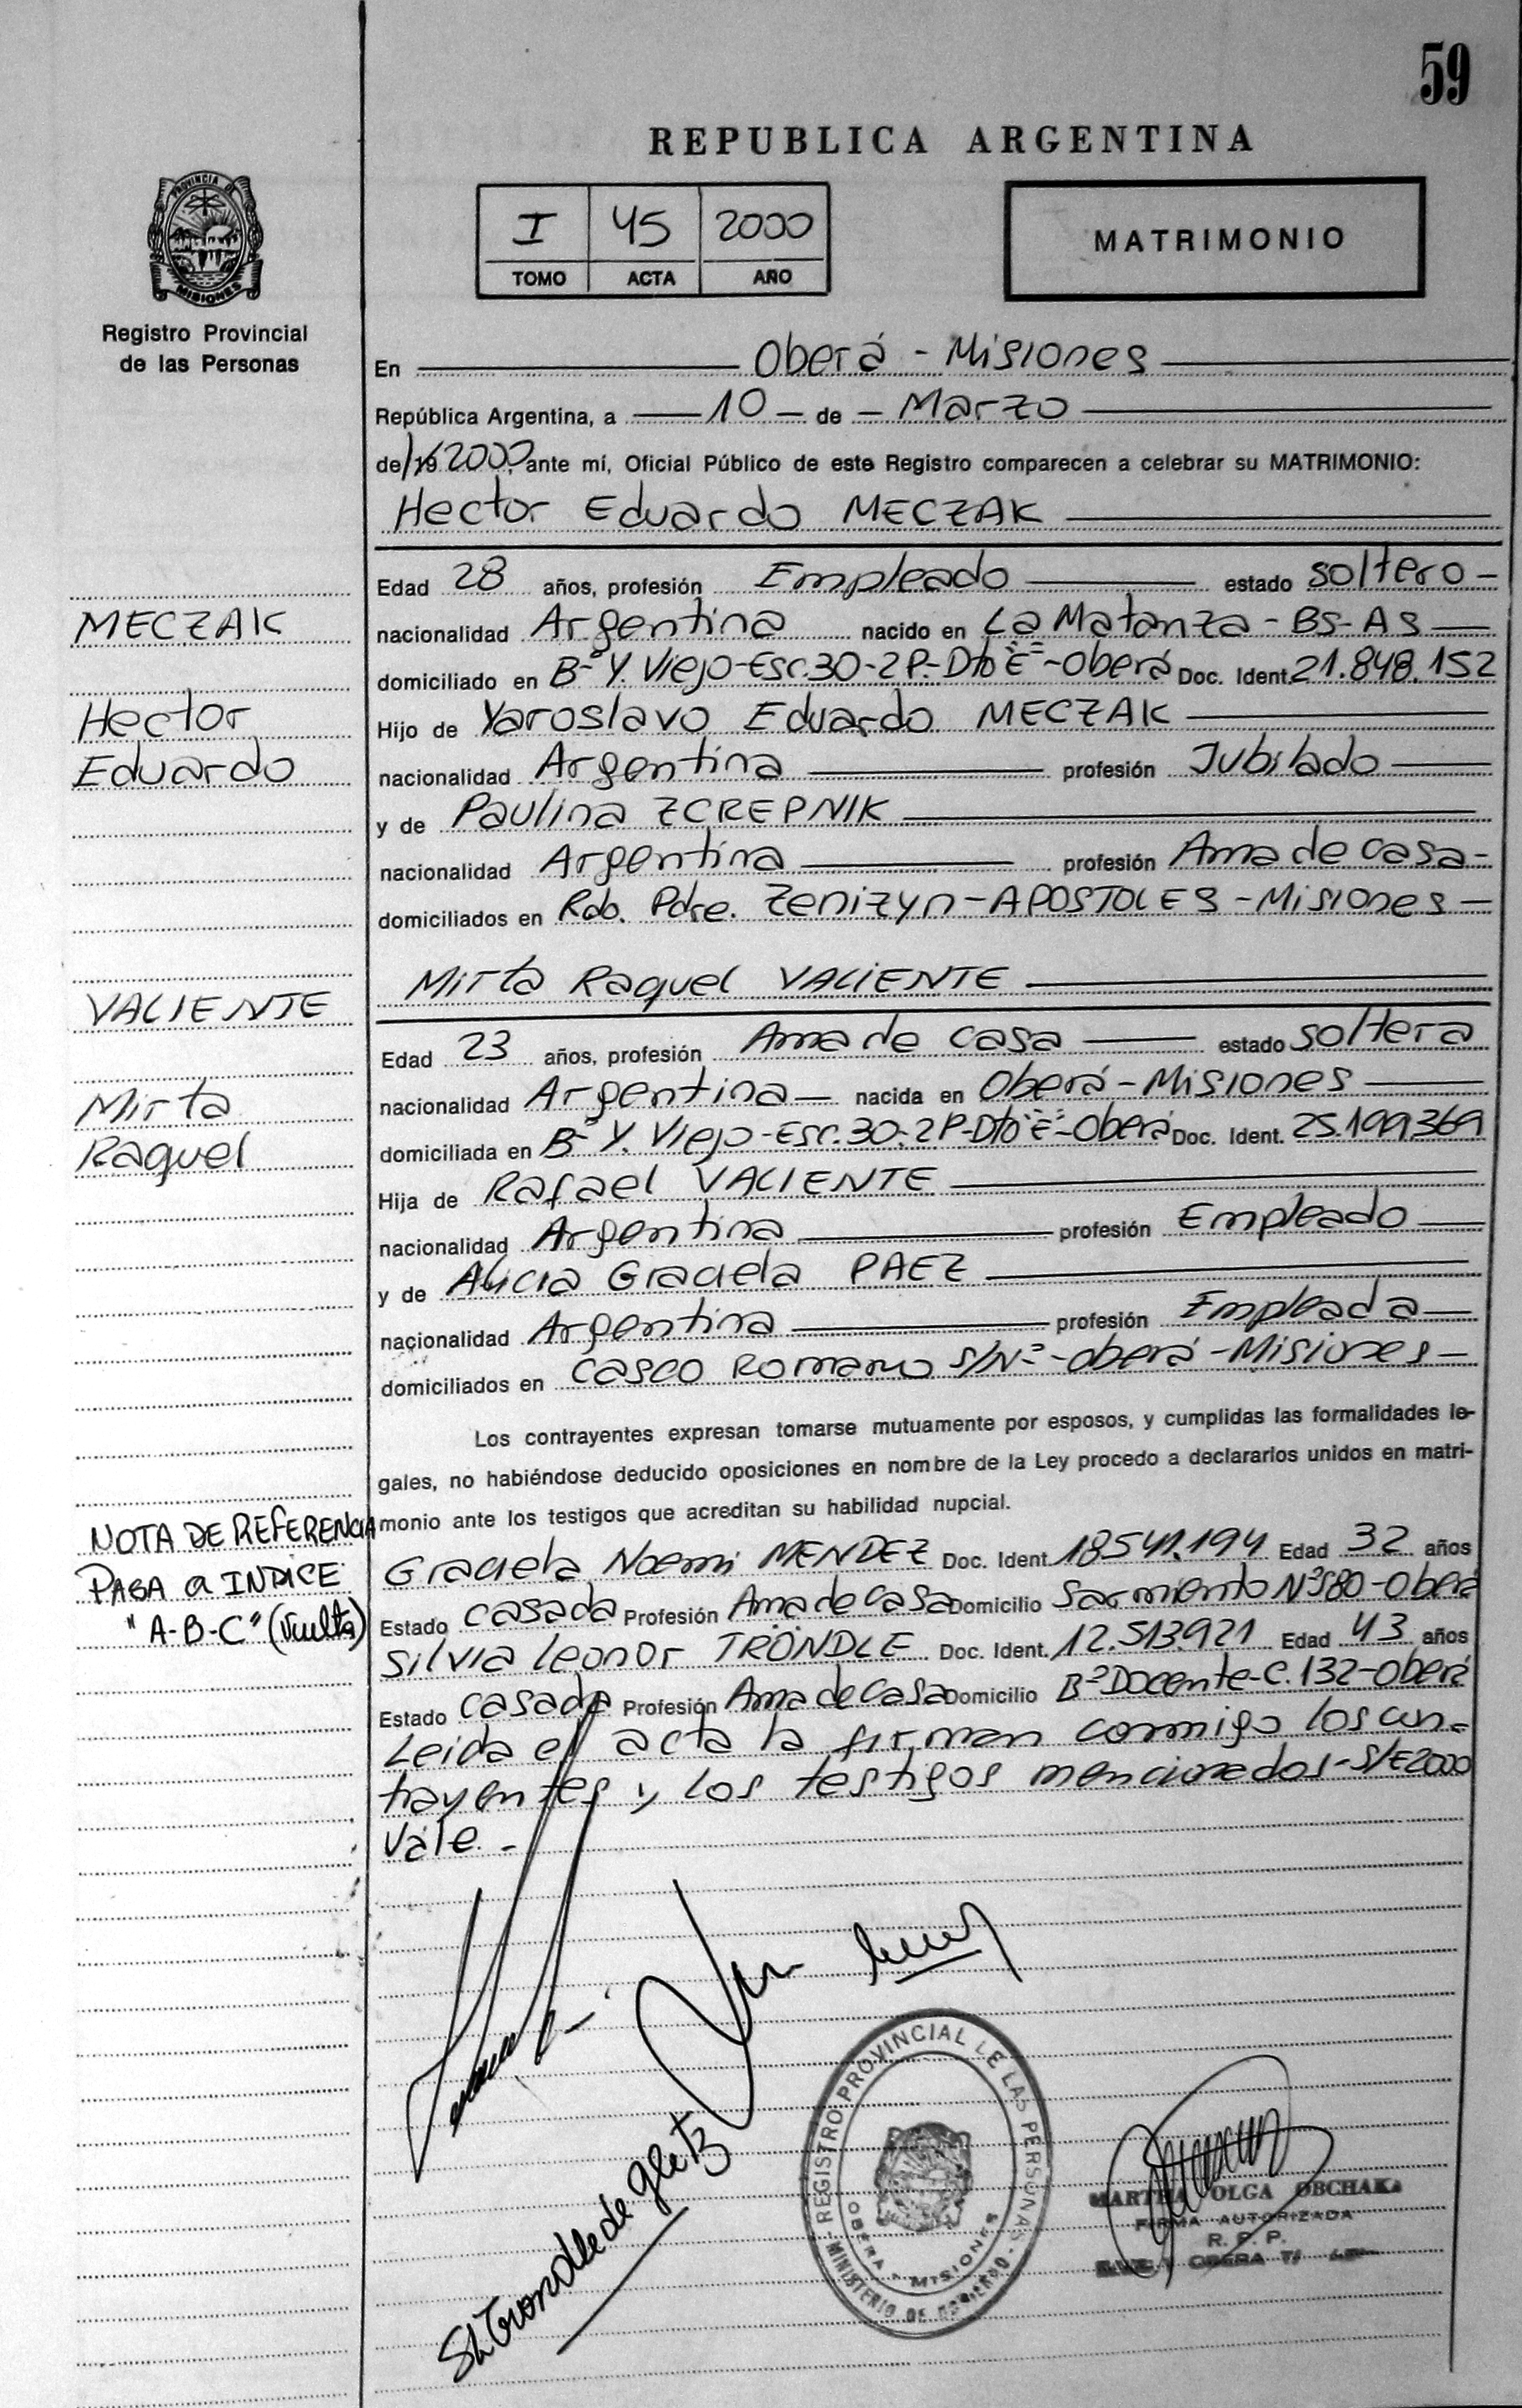 59
REPUBLICA ARGENTINA
PROVINCIA DE
MISIONES
Registro Provincial
de las Personas
I 45 2000
TOMO ACTA AÑO
MATRIMONIO
En Oberá - Misiones
República Argentina, a 10 de Marzo
de 19 2000, ante mí, Oficial Público de este Registro comparecen a celebrar su MATRIMONIO:
Hector Eduardo MECZAK
Edad 28 años, profesión Empleado estado soltero -
nacionalidad Argentina nacido en La Matanza - Bs-As
domiciliado en Bº Y. Viejo-Esc.30-2P.-Dto "E"-Oberá Doc. Ident. 21.848.152
Hijo de Yaroslavo Eduardo MECZAK
nacionalidad Argentina profesión Jubilado
y de Paulina ZCREPNIK
nacionalidad Argentina profesión Ama de casa-
domiciliados en Rdo. Pdre. Zenizyn-APOSTOLES-Misiones-
MECZAK
Hector
Eduardo
Mirta Raquel VALIENTE
Edad 23 años, profesión Ama de casa estado soltera
nacionalidad Argentina nacida en Oberá-Misiones
domiciliada en Bº Y. Viejo-Esc.30-2P-Dto "E"-Oberá Doc. Ident. 25.199369
Hija de Rafael VALIENTE
nacionalidad Argentina profesión Empleado
y de Alicia Graciela PAEZ
nacionalidad Argentina profesión Empleada
domiciliados en Casco Romano S/Nº-Oberá-Misiones-
VALIENTE
Mirta
Raquel
Los contrayentes expresan tomarse mutuamente por esposos, y cumplidas las formalidades le-
gales, no habiéndose deducido oposiciones en nombre de la Ley procedo a declararlos unidos en matri-
monio ante los testigos que acreditan su habilidad nupcial.
Graciela Noemi MENDEZ Doc. Ident. 18541.194 Edad 32 años
Estado casada Profesión Ama de casa Domicilio Sarmiento Nº580-Oberá
Silvia Leonor TRÖNDLE Doc. Ident. 12.513.921 Edad 43 años
Estado casada Profesión Ama de casa Domicilio Bº Docente-C.132-Oberá
Leida el acta la firman conmigo los con-
trayentes y los testigos mencionados-S/E2000
Vale.-
NOTA DE REFERENCIA
PASA a INDICE
"A-B-C" (Vuelta)
SLTrondle de Gletz
REGISTRO PROVINCIAL DE LAS PERSONAS
MINISTERIO DE GOBIERNO
OBERA - MISIONES
MARTHA OLGA OBCHAKA
FIRMA AUTORIZADA
R. P. P.